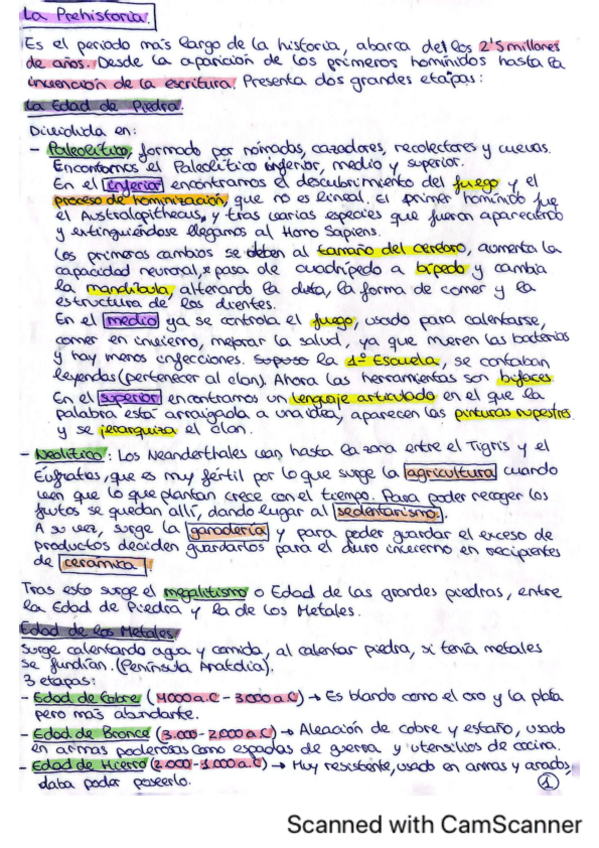 La Prehistoria.
Es el periodo más largo de la historia, abarca del los 2'5 millones
de años. Desde la aparición de los primeros homínidos hasta la
invención de la escritura. Presenta dos grandes etapas:
La Edad de Piedra.
Dividida en:
- Paleolítico, formado por nómadas, cazadores, recolectores y cuevas.
Encontramos el Paleolítico inferior, medio y superior.
En el inferior encontramos el descubrimiento del fuego y el
proceso de hominización, que no es lineal. El primer homínido fue
el Australopithecus, y tras varias especies que fueron apareciendo
y extinguiéndose llegamos al Homo Sapiens.
Los primeros cambios se deben al tamaño del cerebro, aumenta la
capacidad neuronal, pasa de cuadrípedo a bípedo y cambia
la mandíbula, alterando la dieta, la forma de comer y la
estructura de los dientes.
En el medio ya se controla el fuego, usado para calentarse,
comer en invierno, mejorar la salud, ya que mueren las bacterias
y hay menos infecciones. Supuso la 1º Escuela, se contaban
leyendas (pertenecer al clan). Ahora las herramientas son bifaces.
En el superior encontramos un lenguaje articulado en el que la
palabra está arraigada a una idea, aparecen las pinturas rupestres
y se jerarquiza el clan.
- Neolítico: Los Neanderthales van hasta la zona entre el Tigris y el
Eúfrates, que es muy fértil por lo que surge la agricultura cuando
ven que lo que plantan crece con el tiempo. Para poder recoger los
frutos se quedan allí, dando lugar al sedentarismo.
A su vez, surge la ganadería y para poder guardar el exceso de
productos deciden guardarlos para el duro invierno en recipientes
de cerámica.
Tras esto surge el megalitismo o Edad de las grandes piedras, entre
la Edad de Piedra y la de los Metales.
Edad de los Metales
Surge calentando agua y comida, al calentar piedra, si tenía metales
se fundían. (Península Anatolia).
3 etapas:
- Edad de Cobre (4000 a.C - 3000 a.C) → Es blando como el oro y la plata
pero más abundante.
- Edad de Bronce (3.000 - 2.000 a.C) → Aleación de cobre y estaño, usado
en armas poderosas como espadas de guerra y utensilios de cocina.
- Edad de Hierro (2.000 - 1.000 a.C) → Muy resistente, usado en armas y arados,
daba poder poseerlo.
1
Scanned with CamScanner